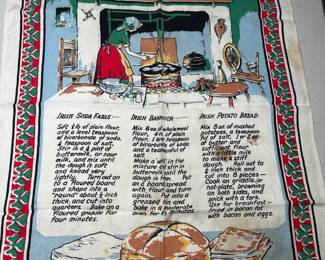 IRISH SODA FARLS....
Sift ½ lb of plain flour,
add a level teaspoon
of bicarbonate of soda,
½ teaspoon of salt.
Stir in a ½ pint of
buttermilk, or sour
milk, and mix until
the dough is soft
and knead very
lightly. Turn out on
to a floured board
and shape into a
"round" about ½ inch
thick and cut into
quarters. Bake on a
floured griddle for
four minutes.
IRISH BANNOCK
Mix 8 oz of wholemeal
flour, 4 oz of plain
flour, 1 level teaspoon
of bicarbonate of soda
and a teaspoonful of
salt.
Make a well in the
mixture and stir in
buttermilk until the
dough is free. Put
on a board, spread
with flour and turn
again. Put into a
greased tin and
bake in a moderate
oven for 45 minutes.
IRISH POTATO BREAD
Mix 8 oz of mashed
potatoes, ½ teaspoon
of salt, 1 oz
of butter and
sufficient flour
with a little milk
to make a stiff
dough. Roll out to
½ inch thick and
cut into 8 pieces—
Cook on griddle, or
hot plate, browning
on both sides, and
prick with a fork.
Use for breakfast
fried in bacon fat
with bacon and eggs.